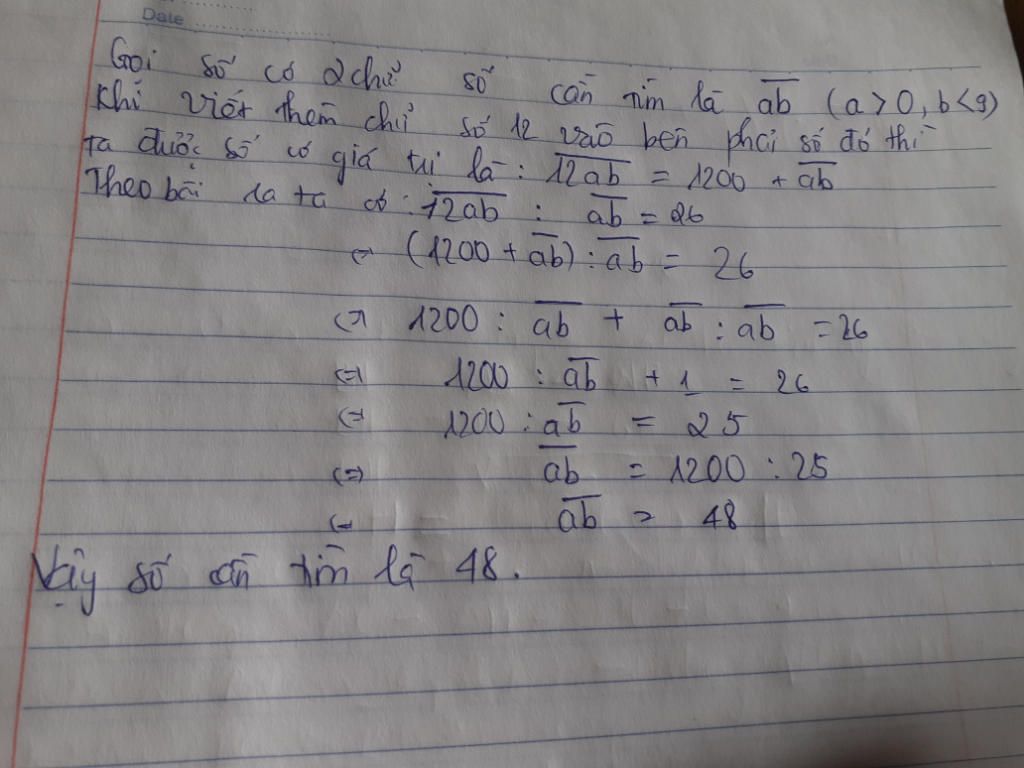 Date
Gọi số có 2 chữ số cần tìm là ab (a>0, b<9)
Khi viết thêm chữ số 12 vào bên phải số đó thì
ta được số có giá trị là : 12ab = 1200 + ab
Theo bài ra ta có : 12ab : ab = 26
<=> (1200 + ab) : ab = 26
<=> 1200 : ab + ab : ab = 26
<=> 1200 : ab + 1 = 26
<=> 1200 : ab = 25
<=> ab = 1200 : 25
<=> ab = 48
Vậy số cần tìm là 48.